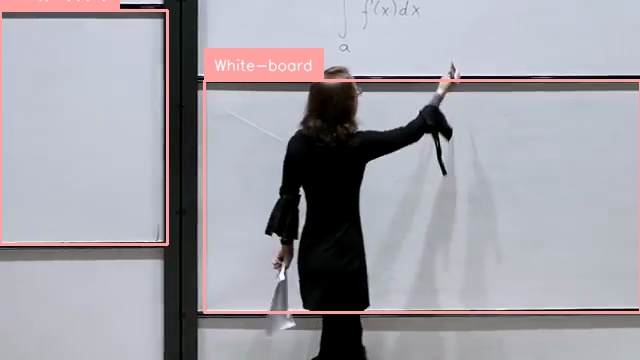 ∫ f'(x)dx
a
White-board